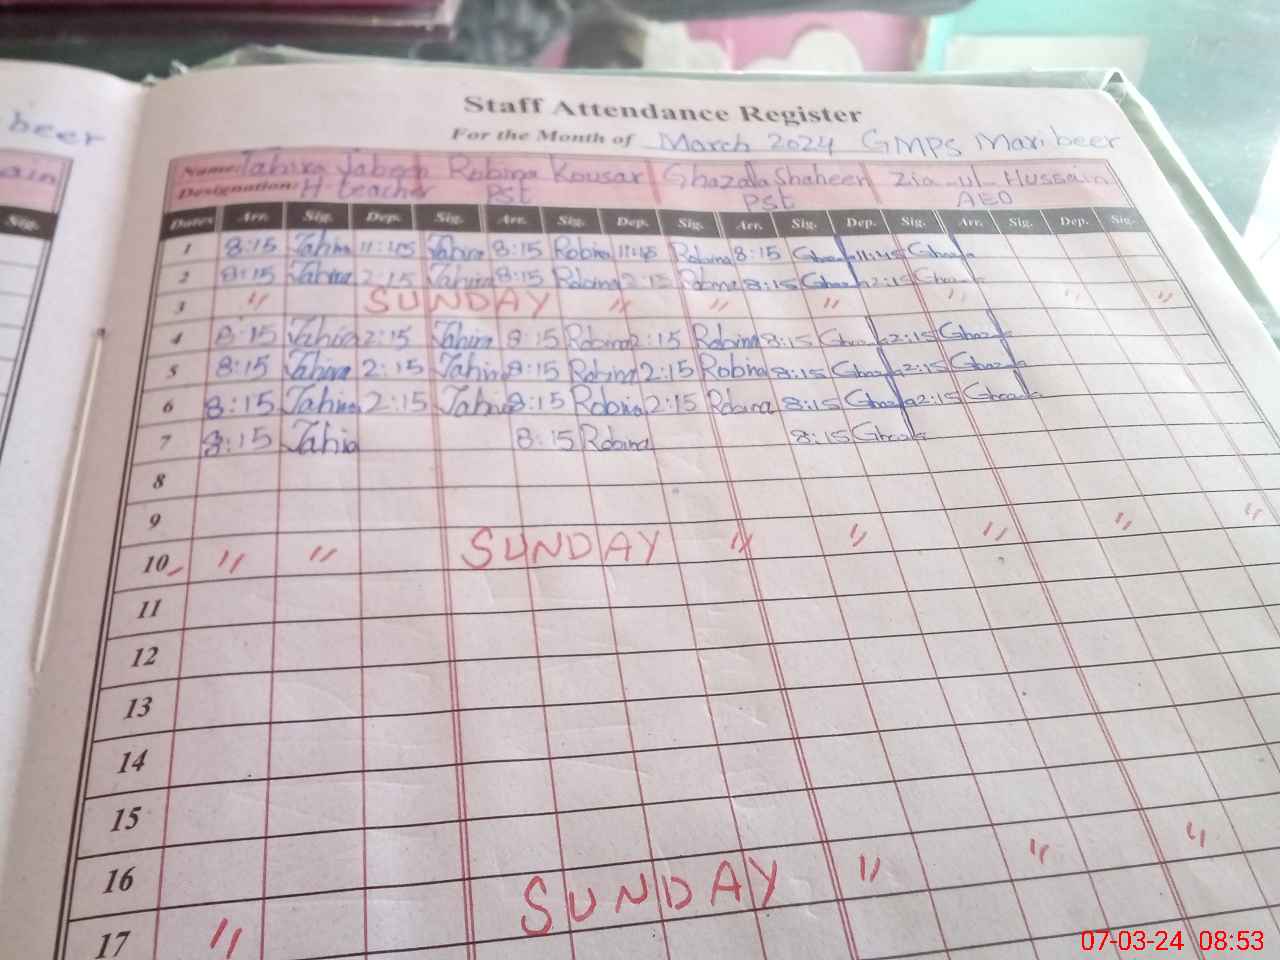 beer
ain
Sig.
Staff Attendance Register
For the Month of March 2024 GMPS Mari beer
Name: Tahira Jabeen Robina Kousar Ghazala Shaheen Zia-ul-Hussain
Designation: H-teacher PST PST AEO
Dates Arr. Sig. Dep. Sig. Arr. Sig. Dep. Sig. Arr. Sig. Dep. Sig. Arr. Sig. Dep. Sig.
1 8:15 Tahira 11:45 Tahira 8:15 Robina 11:45 Robina 8:15 Ghazala 11:45 Ghazala
2 8:15 Tahira 2:15 Tahira 8:15 Robina 2:15 Robina 8:15 Ghazala 2:15 Ghazala
3 " SUNDAY " " " " " "
4 8:15 Tahira 2:15 Tahira 8:15 Robina 2:15 Robina 8:15 Ghazala 2:15 Ghazala
5 8:15 Tahira 2:15 Tahira 8:15 Robina 2:15 Robina 8:15 Ghazala 2:15 Ghazala
6 8:15 Tahira 2:15 Tahira 8:15 Robina 2:15 Robina 8:15 Ghazala 2:15 Ghazala
7 8:15 Tahira 8:15 Robina 8:15 Ghazala
8
9
10 " " SUNDAY " " " " "
11
12
13
14
15
16
17 " SUNDAY " " "
07-03-24 08:53